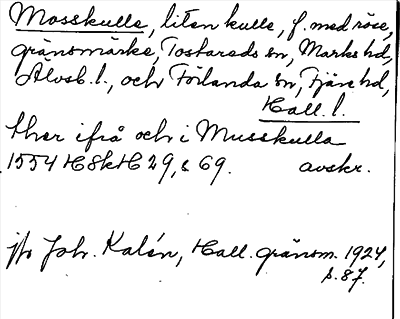 Mosskulle, liten kulle, f. med röse,
gränsmärke, Tostareds sn, Marks hd,
Älvsb. l., och Förlanda sn, Fjäre hd,
Hall. l.
ther ifrå och i Musskulla
1554 H8kHC29, s 69. avskr.
jfr Joh. Kalén, Hall. gränsm. 1924,
s. 87.